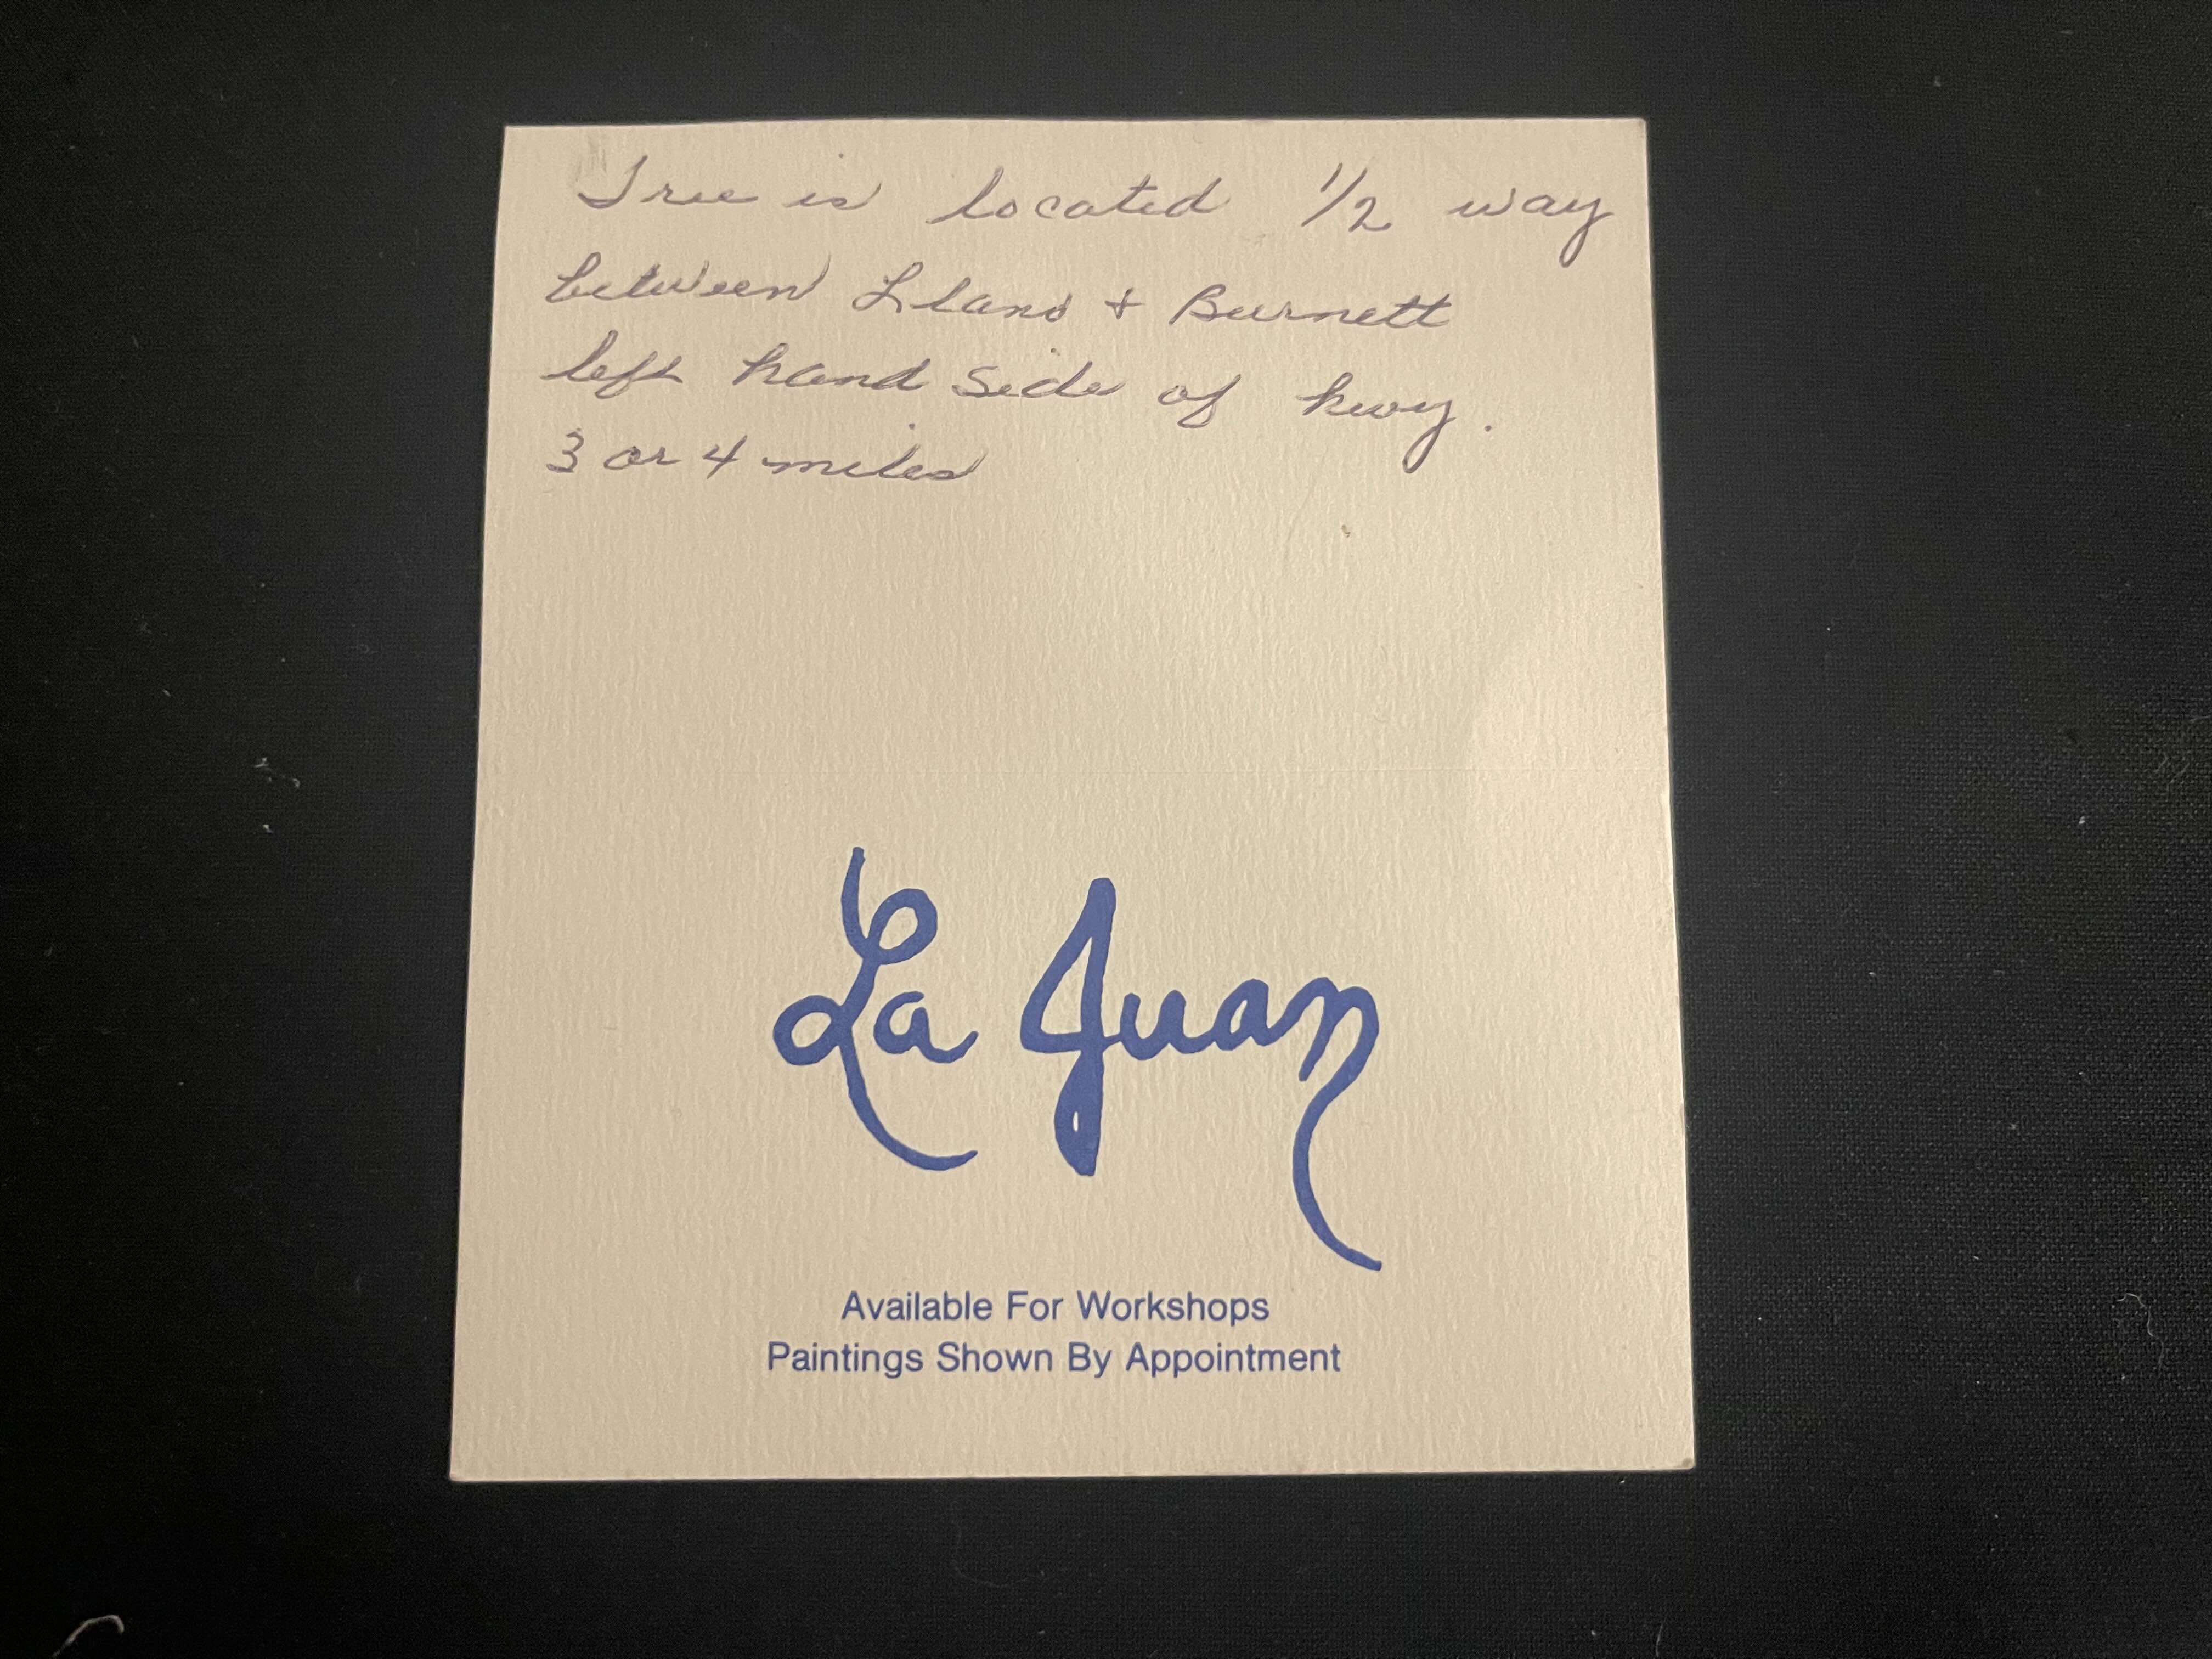 Tree is located 1/2 way
between Llano + Burnett
left hand side of hwy.
3 or 4 miles
La Juan
Available For Workshops
Paintings Shown By Appointment